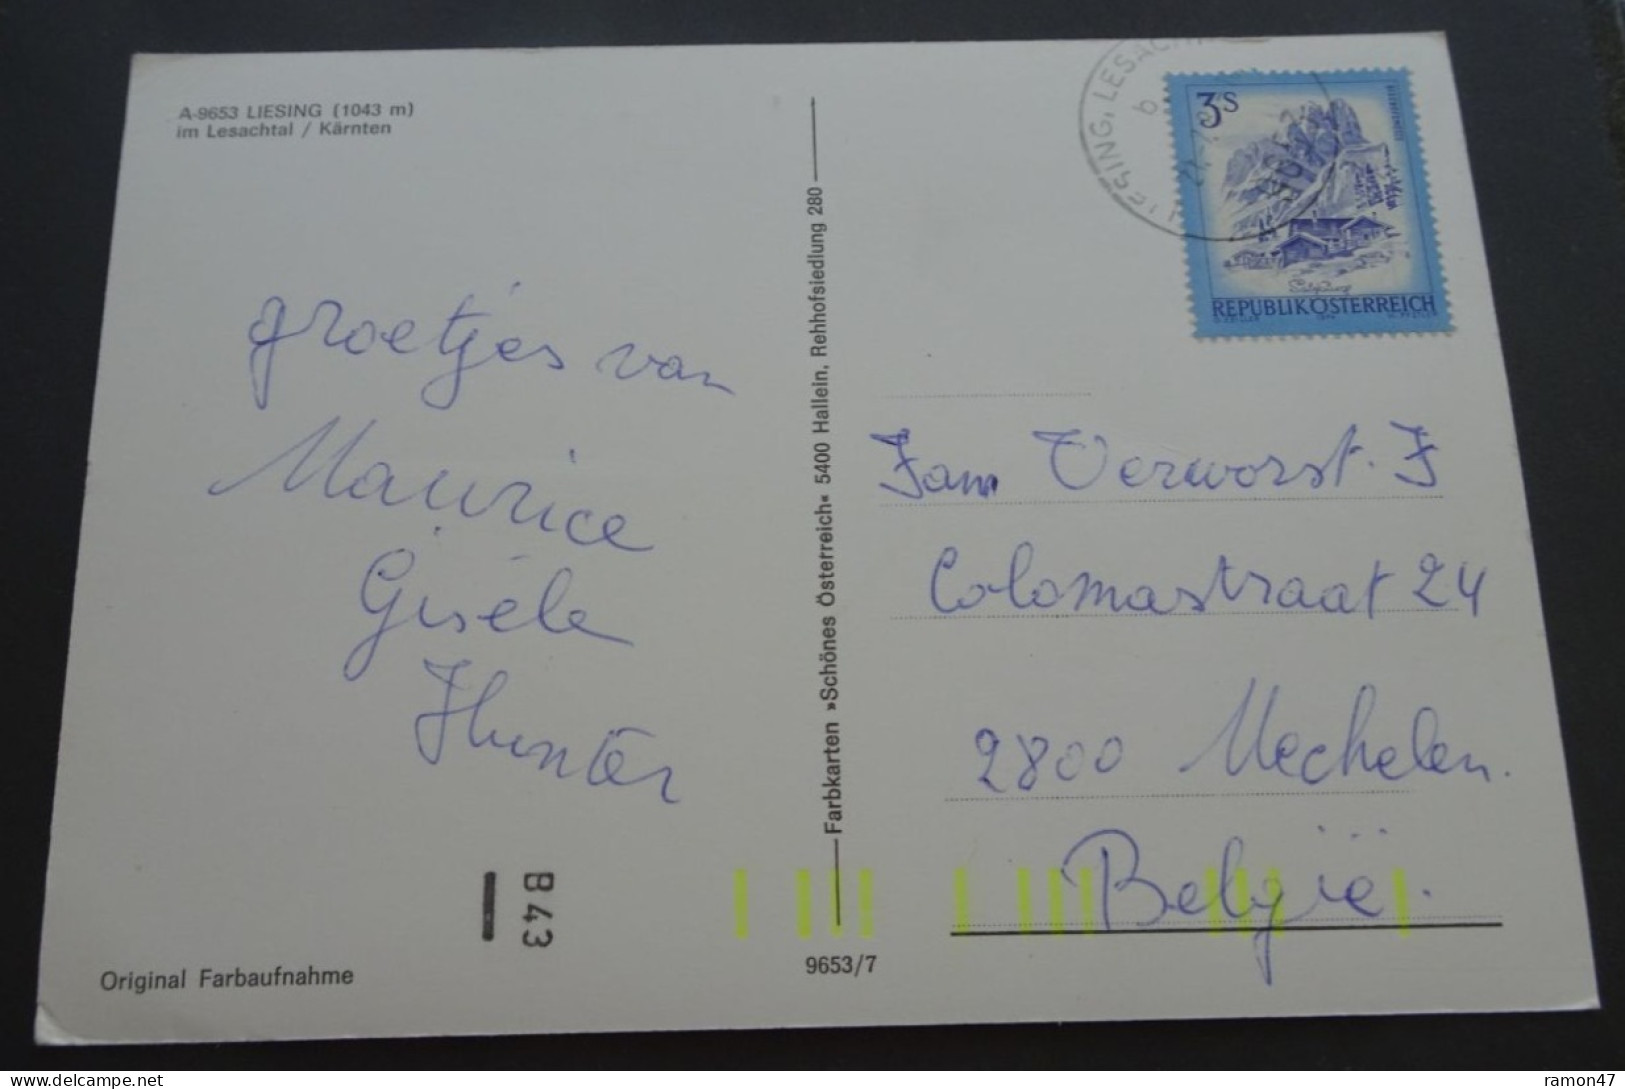 A-9653 LIESING (1043 m)
im Lesachtal / Kärnten
groetjes van
Maurice
Gisèle
Hunter
B 43
Original Farbaufnahme
Farbkarten »Schönes Österreich« 5400 Hallein, Rehhofsiedlung 280
9653/7
LIESING, LESACHTAL
b
3S
REPUBLIK ÖSTERREICH
Fam Verworst. F
Colomastraat 24
2800 Mechelen.
België.
delcampe.net
ramon47